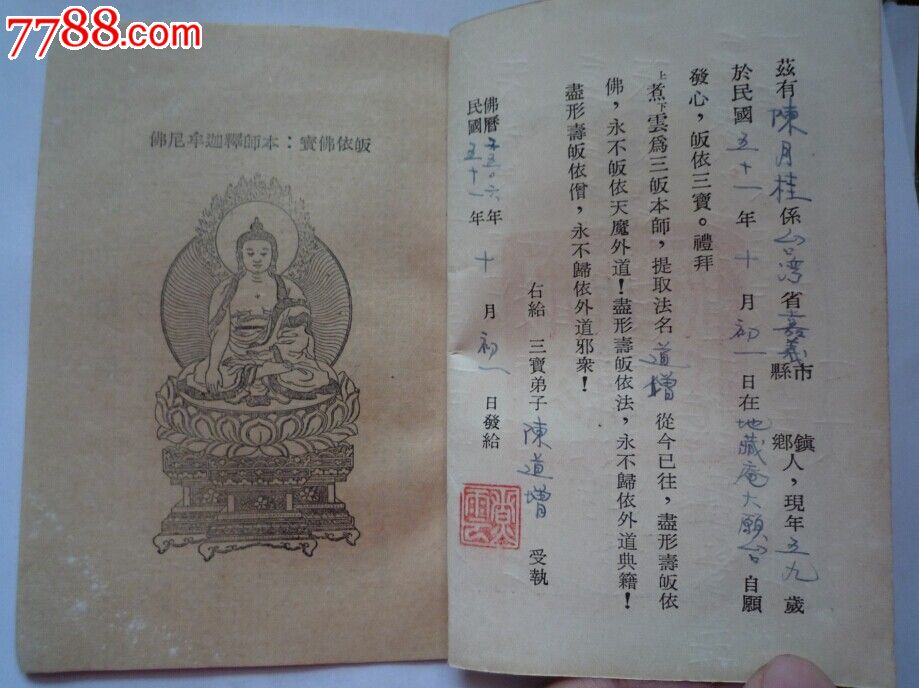 7788.com
茲有陳月桂係台灣省嘉義市縣 鎮鄉人，現年五九歲
於民國五十一年十月初一日在地藏庵大願台自願
發心，皈依三寶。禮拜
上煮下雲爲三皈本師，提取法名道增從今已往，盡形壽皈依
佛，永不皈依天魔外道！盡形壽皈依法，永不歸依外道典籍！
盡形壽皈依僧，永不歸依外道邪衆！
右給 三寶弟子陳道增 受執
佛曆二五〇六年
民國五十一年十月初一日發給
煮雲
皈依佛寶：本師釋迦牟尼佛